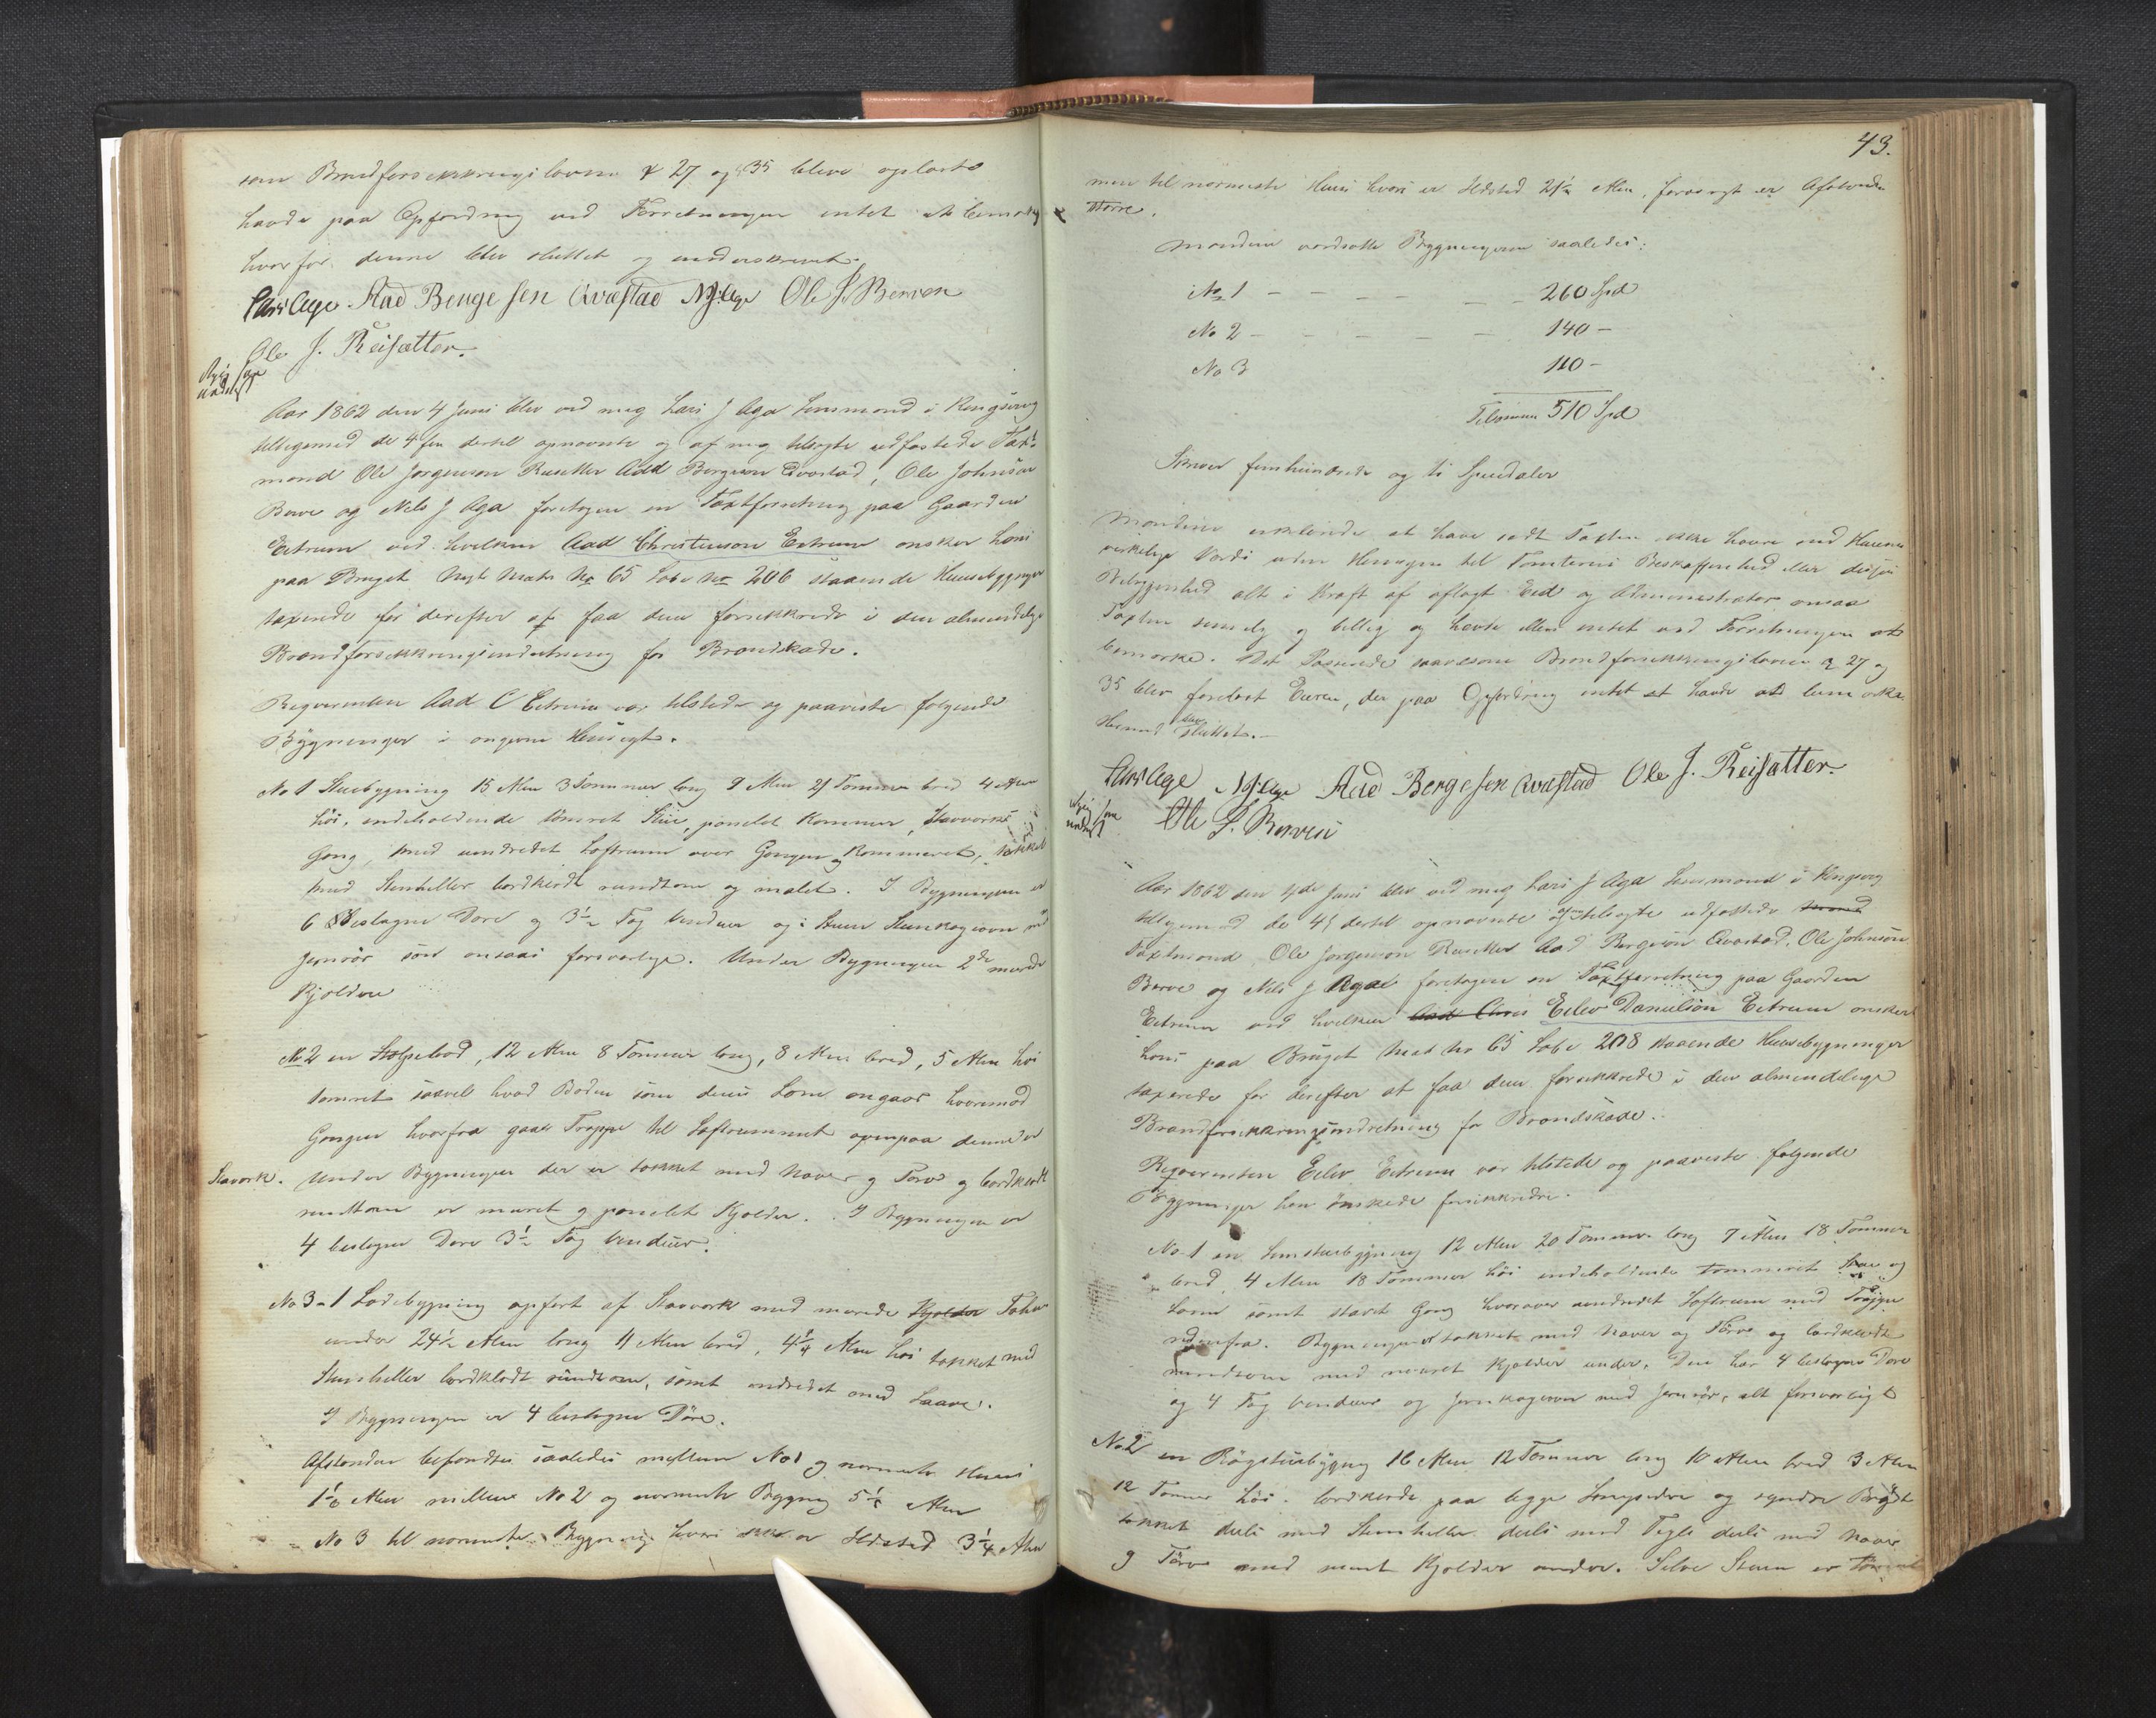 som Brandforsikkringslovens § 27 og § 35 bleve oplæste
havde paa Opfordring ved Forretningen intet at bemærke
hvorfor denne blev sluttet og underskrevet.
Lars Aga Aad Bergesen Qvæstad NJAga Ole J. Berven
Ole J. Reisæter.
Aar 1862 den 4 Juni blev ved mig Lars J Aga Lensmand i Kingservig
tilligemed de 4 fire dertil opnævnte og af mig tilsagte edfæstede Taxt-
mænd Ole Jørgenson Reisæter Aad Bergeson Qvæstad, Ole Johnson
Berve og Nils J Aga foretagen en Taxtforretning paa Gaarden
Eitrum ved hvilken Aad Christenson Eitrum ønsker hans
paa Bruget Nyt Matr No 65 Løbe No 206 staaende Huusebygninger
taxerede for derefter at faa dem forsikkrede i den almindelige
Brandforsikkringsindretning for Brandskade.
Reqvirenten Aad C Eitrum var tilstede og paaviste følgende
Bygninger i angivne Hensigt.
No 1 Stuebygning 15 Alen 3 Tommer lang 9 Alen 21 Tommer bred 4 Alen
høi, indeholdende tømret Stue, panelet Kammer, Stavværks
Gang, med uindredet Loftrum over Gangen og Kammeret, tækket
med Steenheller bordklædt rundtom og malet. I Bygningen er
6 beslagne Døre og 3½ Fag Vinduer og i Stuen Steenkogeovn med
Jernrør som ansaaes forsvarlige. Under Bygningen 2de murede
Kjeldere
No 2 en Stolpebod, 12 Alen 8 Tommer lang, 8 Alen bred, 5 Alen høi
tømret saavel hvad Boden som dens Lem angaar hvorimod
Gangen hvorfra gaar Trappe til Loftrummet ovenpaa denne er
Staværk. Under Bygningen der er tækket med Næver og Torv og bordklædt
rundtom er muret og panelet Kjelder. I Bygningen er
4 beslagne Døre 3½ Fag Vinduer.
No 3 1 Ladebygning opført af Stavværk med murede Kjelder Tofter
under 24½ Alen lang 11 Alen bred, 4¼ Alen høi tækket med
Steenheller bordklædt rundtom, samt indredet med Laave.
I Bygningen er 4 beslagne Døre.
Afstanden befandtes saaledes mellem No 1 og nærmeste Huus
Alen mellem No 2 og nærmeste Bygning Alen
No 3 til nærmeste Bygning hvori ikke er Ildsted 3¼ Alen
43.
men til nærmeste Huus hvori er Ildsted 21½ Alen, forøvrigt er Afstanden
større.
Mændene værdsatte Bygningerne saaledes:
No 1 - - - - - - 260 Spd
No 2 - - - - - - 140 -
No 3 110 -
Tilsammen 510 Spd
Skriver femhundrede og ti Speciedaler
Mændene erklærede at have sadt Taxten ikke høiere end Husenes
virkelige Værdi uden Hensyn til Tomternes Beskaffenhed eller disses
Beliggenhed alt i Kraft af aflagt Eed og Administrator ansaa
Taxten rimelig og billig og havde ellers intet ved Forretningen at
bemærke. Det Passerede saavelsom Brandforsikkringsloven § 27 og
35 blev forelæst Eieren, der paa Opfordring intet at havde at bemærke
Hermed sluttet.
Lars Aga NJAga Aad Bergesen Qvæstad Ole J. Reisæter.
Ole J. Berven
Aar 1862 den 4de Juni blev ved mig Lars J Aga Lensmand i Kingservig
tilligemed de 4 dertil opnævnte af mig tilsagte edfæstede Mænd
Taxtmænd, Ole Jørgenson Reisæter Aad Bergeson Qvæstad, Ole Johnson
Berve og Nils J Aga foretagen en Taxtforretning paa Gaarden
Eitrum ved hvilken Aad Chris Eilev Danielson Eitrum ønsker
hans paa Bruget Mat No 65 Løbe 208 staaende Huusebygninger
taxerede for derefter at faa dem forsikkrede i den almindelige
Brandforsikkringsindretning for Brandskade.
Reqvirenten Eilev Eitrum var tilstede og paaviste følgende
Bygninger han ønskede forsikkrede.
No 1 en Lemstuebygning 12 Alen 20 Tommer lang 7 Alen 18 Tommer
bred 4 Alen 18 Tommer høi indeholdende tømmeret Stue og
Lem samt stavet Gang hvorover uindredet Loftrum med Trappe
nedenfra. Bygningen er tækket med Næver og Tørv og bordklædt
rundtom med muret Kjelder under. Den har 4 beslagne Døre
og 4 Fag Vinduer og Jernkogeovn med Jernrør, alt forsvarligt
No 2 en Røgstuebygning 16 Alen 12 Tommer lang 10 Alen bred 3 Alen
12 Tommer høi. bordklædt paa begge Langsider og syndre Brøst
tækket deels med Steenheller deels med Tegl deels med Næver
og Tørv med muret Kjelder under. Selve Stuen er tømret